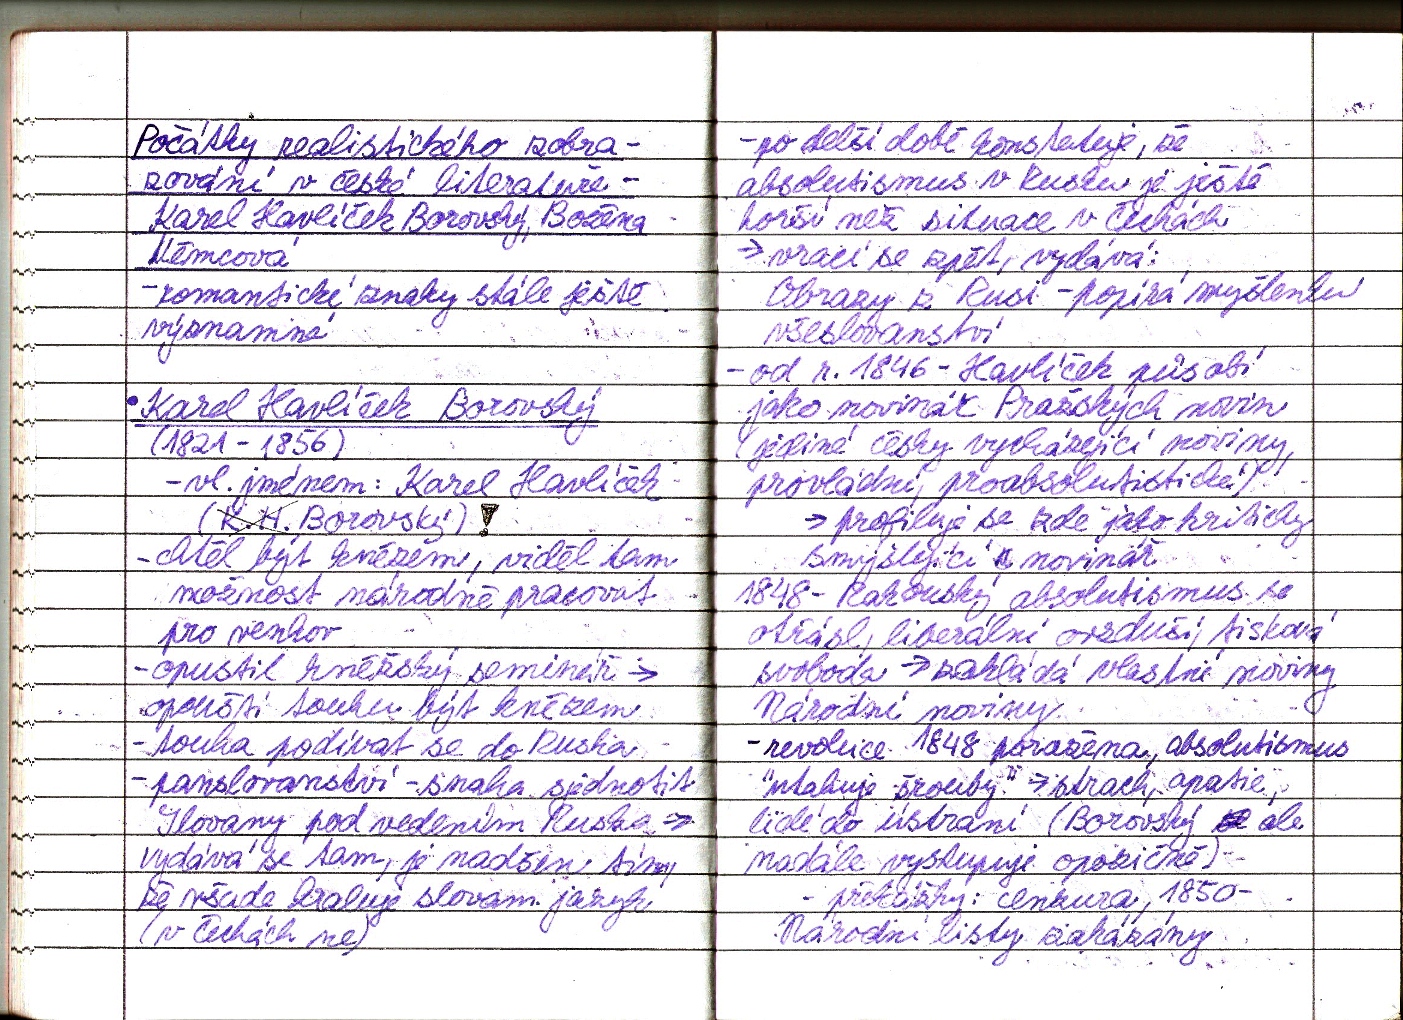 Počátky realistického zobra-
zování v české literatuře -
Karel Havlíček Borovský, Božena
Němcová
- romantické znaky stále ještě
významné
• Karel Havlíček Borovský
(1821 - 1856)
- vl. jménem: Karel Havlíček
(K. H. Borovský) !
- chtěl být knězem, viděl tam
možnost národně pracovat
pro venkov
- opustil kněžský seminář →
opouští touhu být knězem
- touha podívat se do Ruska
- panslovanství - snaha sjednotit
Slovany pod vedením Ruska →
vydává se tam, je nadšen tím,
že všude kraluje slovan. jazyk
(v Čechách ne)
- po delší době konstatuje, že
absolutismus v Rusku je ještě
horší než situace v Čechách
→ vrací se zpět, vydává:
Obrazy z Rusi - popírá myšlenku
všeslovanství
- od r. 1846 - Havlíček působí
jako novinář Pražských novin
(jediné česky vycházející noviny,
provládní, proabsolutistické)
→ profiluje se zde jako kriticky
smýšlející novinář
1848 - Rakouský absolutismus se
otřásl, liberální ovzduší, tisková
svoboda → zakládá vlastní noviny
Národní noviny
- revoluce 1848 poražena, absolutismus
"utahuje šrouby" → strach, apatie,
lidé do ústraní (Borovský ale
nadále vystupuje opozičně)
- překážky: cenzura, 1850 -
Národní listy zakázány